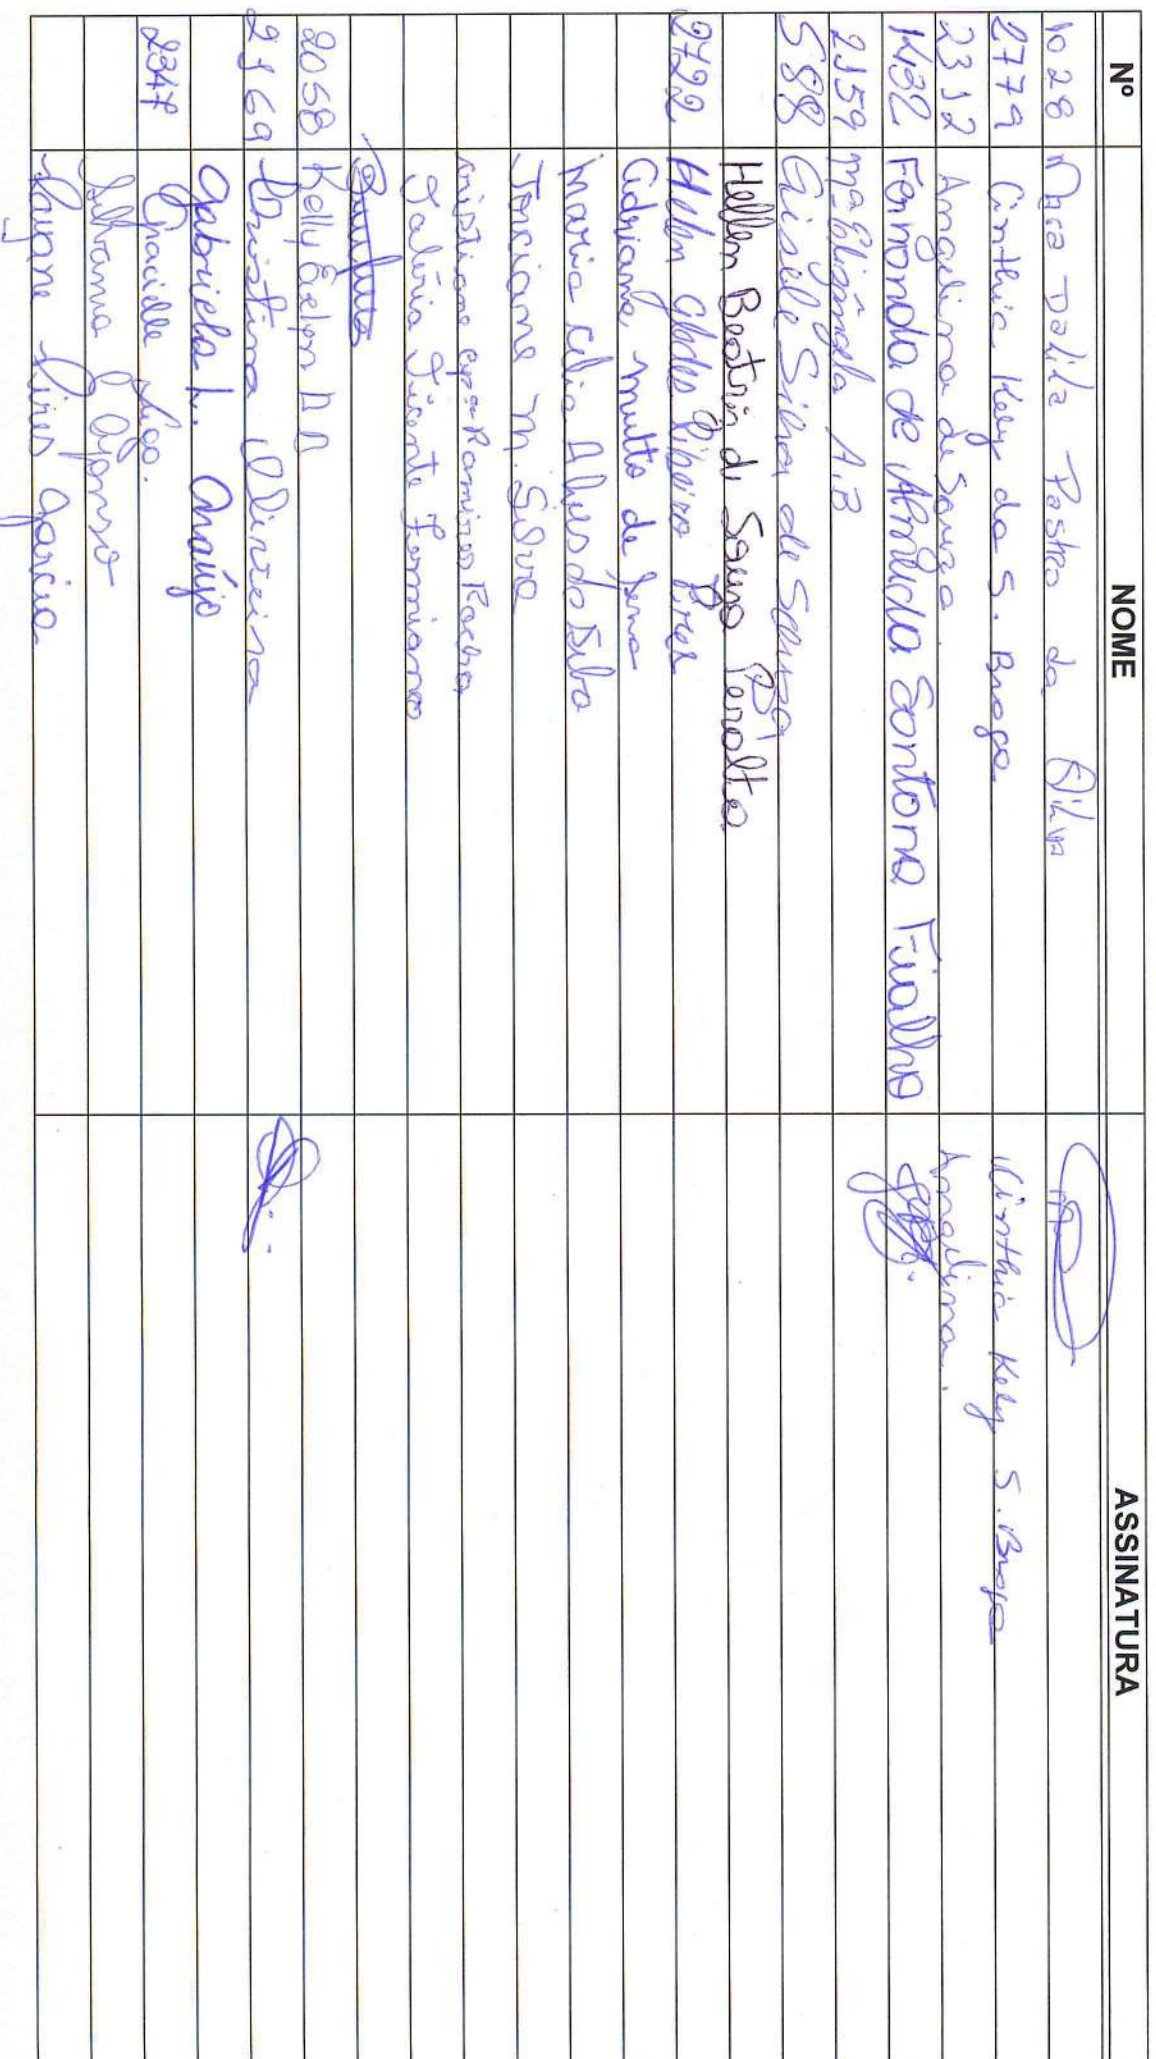 Nº NOME ASSINATURA
1028 Mara Dalila Pastro da Silva
2779 Cinthia Kely da S. Braga Cinthia Kely S. Braga
2312 Angelina de Souza Angelina.
1432 Fernanda de Arruda Santana Fialho
2159 Mª Elizângela A.B
588 Gisele Silva de Souza
Hellen Beatriz de Souza Peralta
2722 Helen Ribeiro Pires
Adriane de
Maria Célia Alves da Silva
Joiciane M. Silva
Cristiane Apª Ramires Rocha
Valéria Vicente
2058 Kelly
2169 Christina Oliveira
Gabriela L. Araújo
2347 Gracielle
Afonso
Garcia